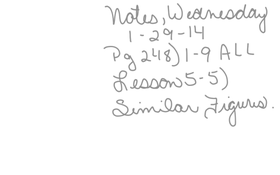 Notes, Wednesday
1-29-14
Pg 248) 1-9 ALL
Lesson 5-5)
Similar Figures.